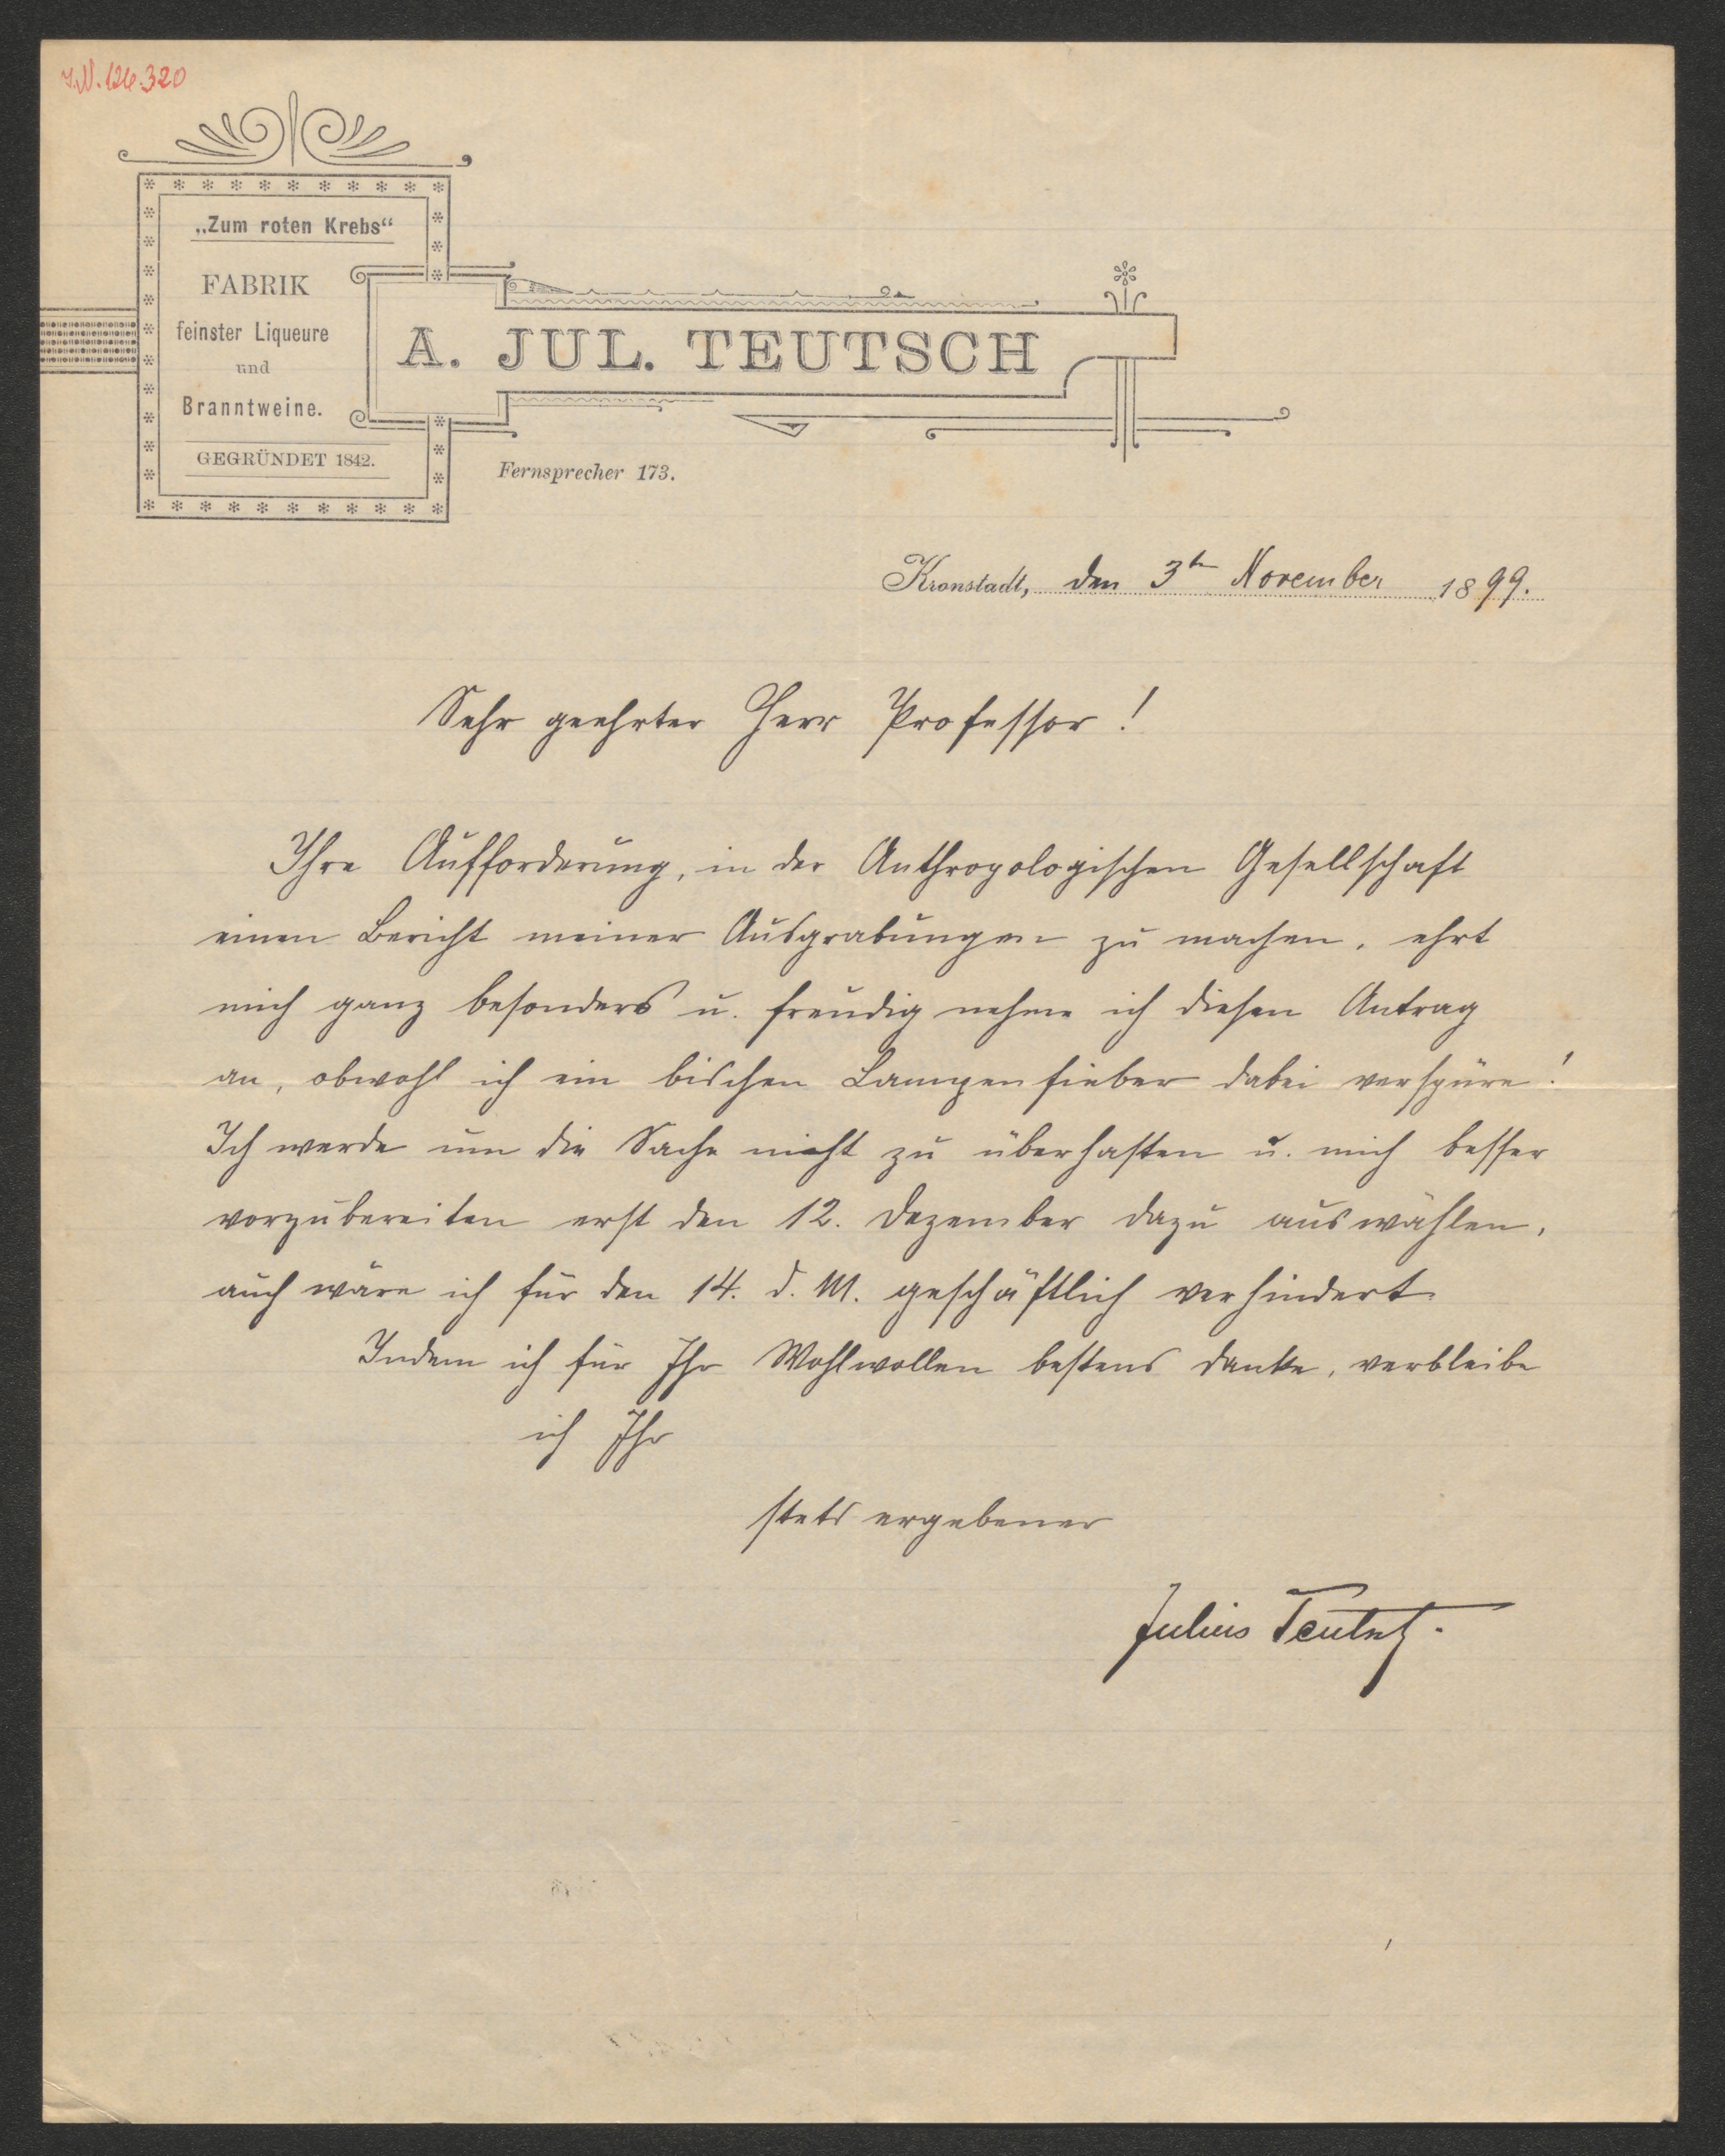 J.N. 126.320
„Zum roten Krebs“
FABRIK
feinster Liqueure
und
Branntweine.
GEGRÜNDET 1842.
A. JUL. TEUTSCH
Fernsprecher 173.
Kronstadt, den 3ten November 1899.
Sehr geehrter Herr Professor!
Ihre Aufforderung, in der Anthropologischen Gesellschaft
einen Bericht meiner Ausgrabungen zu machen, ehrt
mich ganz besonders u. freudig nehme ich diesen Antrag
an, obwohl ich ein bischen Lampenfieber dabei verspüre!
Ich werde um die Sache nicht zu überhasten u. mich besser
vorzubereiten erst den 12. Dezember dazu auswählen,
auch wäre ich für den 14. d. M. geschäftlich verhindert.
Indem ich für Ihr Wohlwollen bestens danke, verbleibe
ich Ihr
stets ergebener
Julius Teutsch.